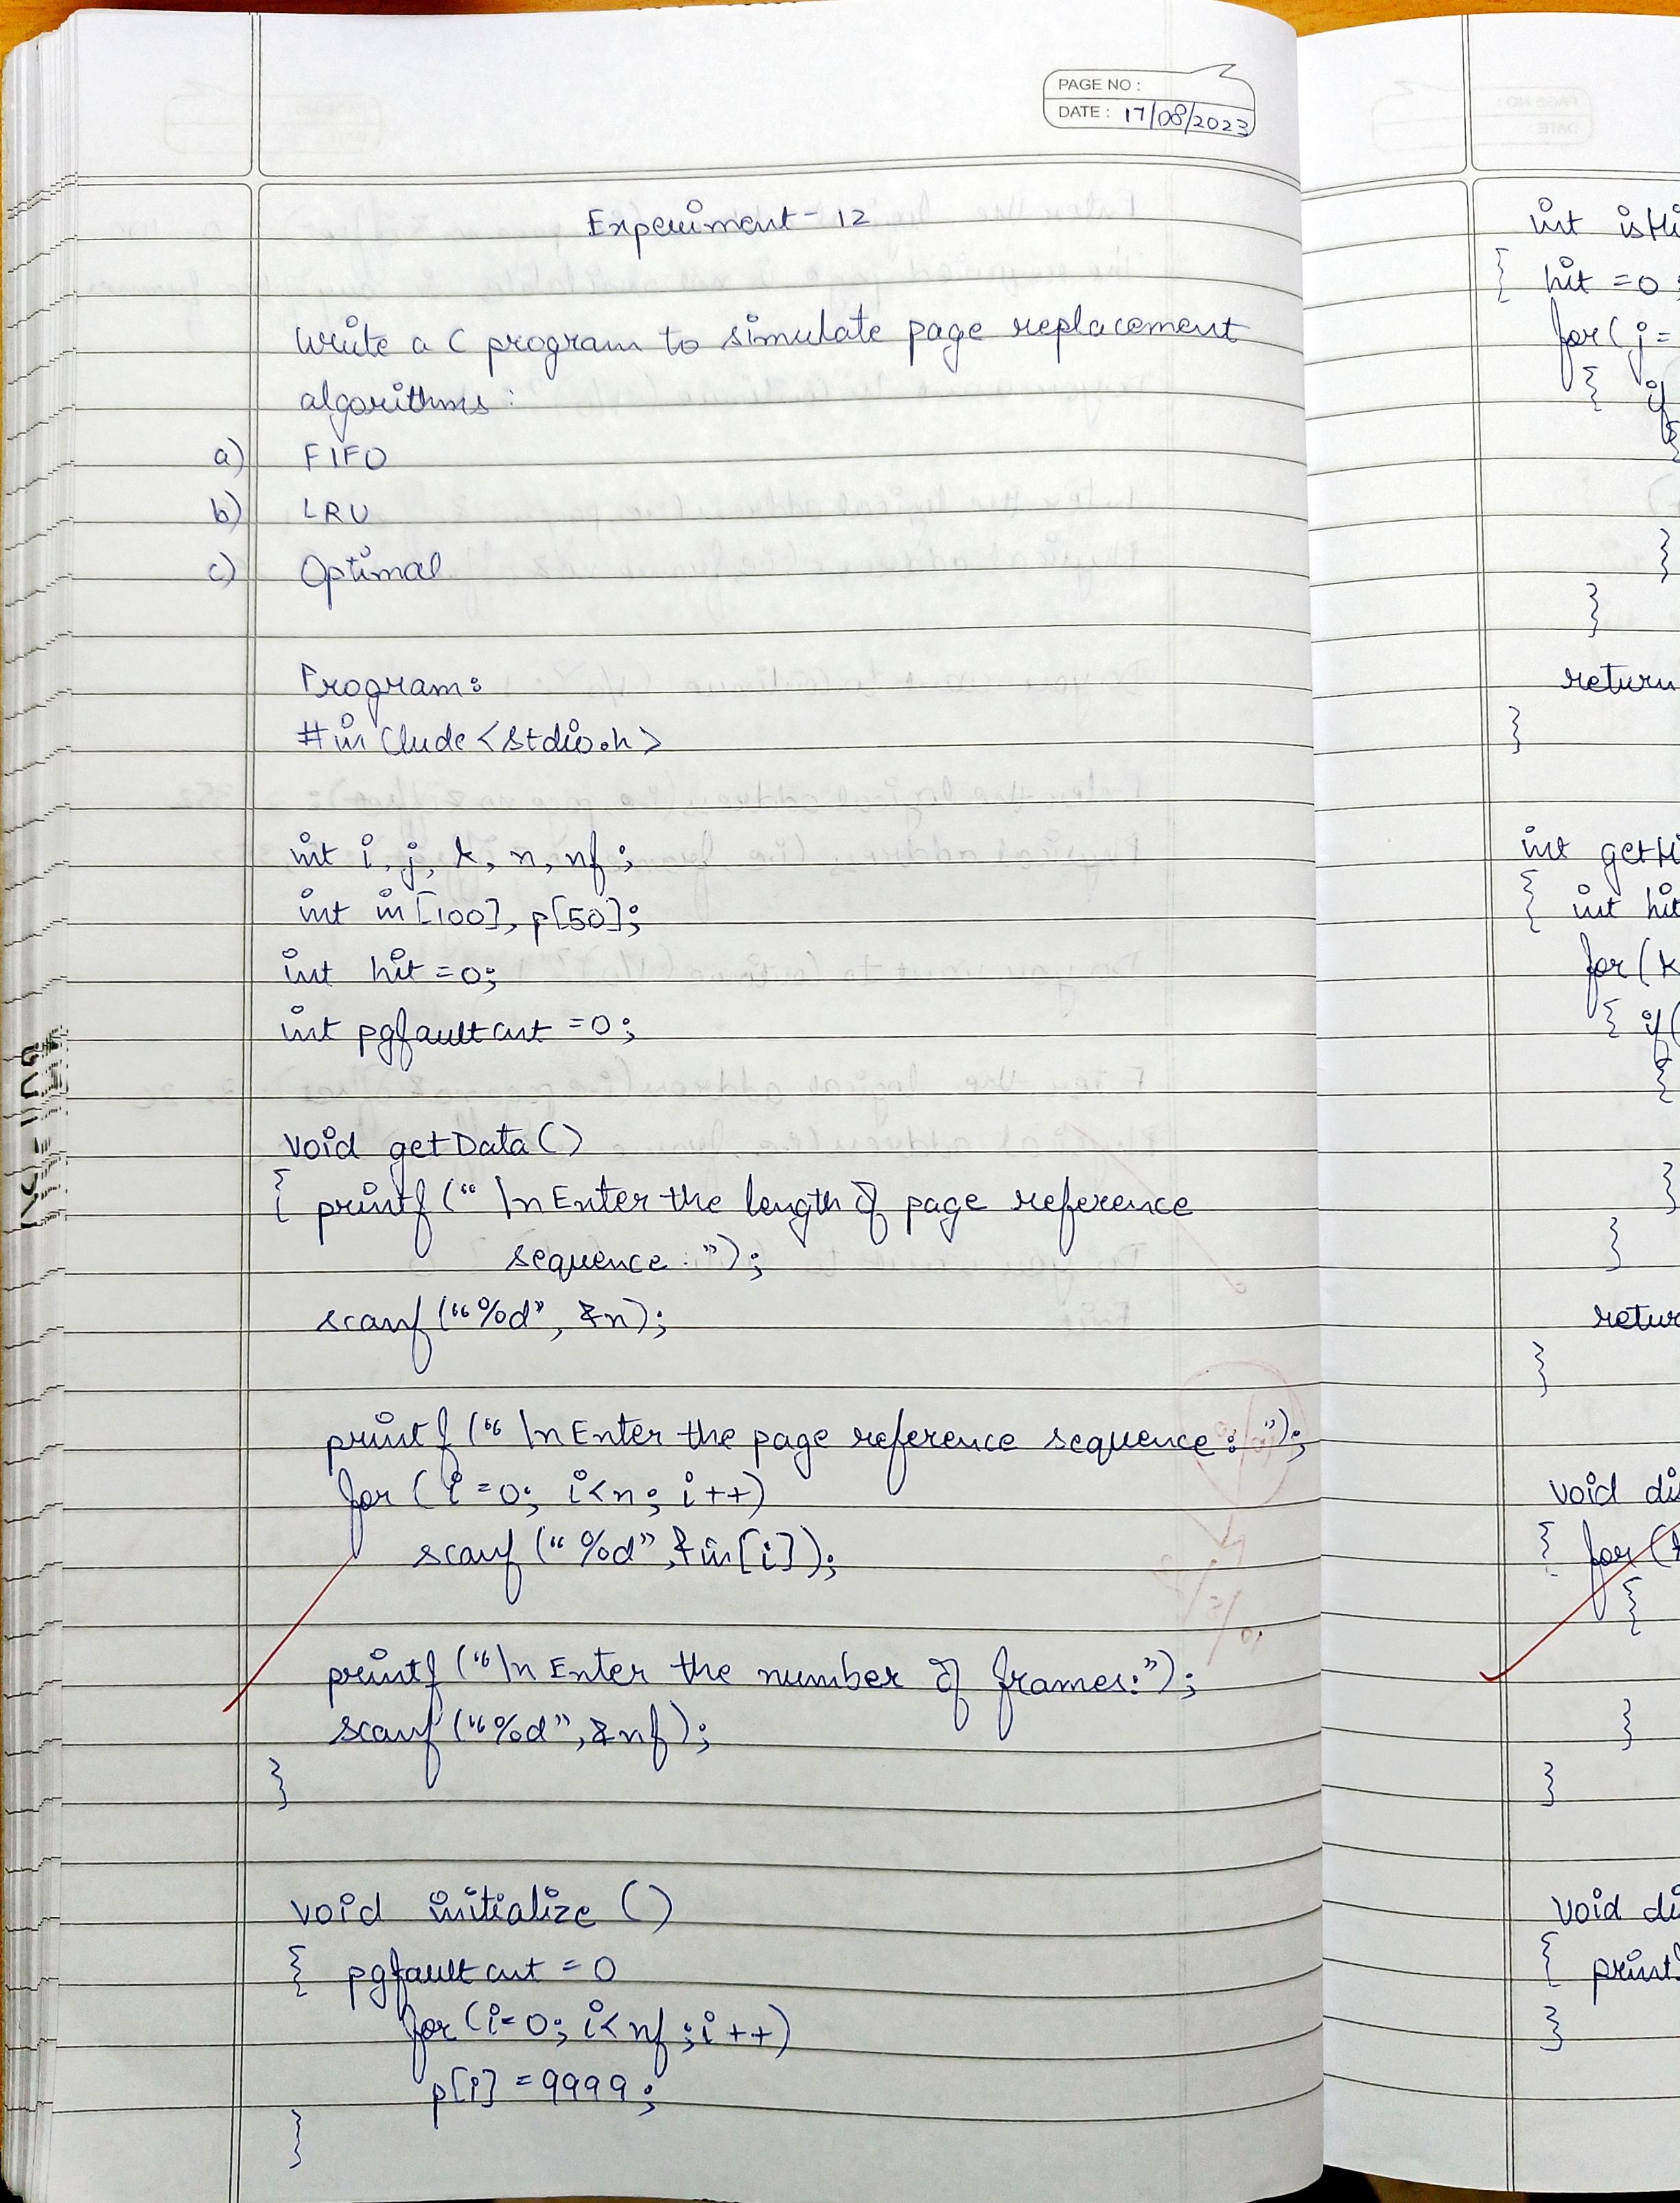 PAGE NO :
DATE : 17/08/2023
Experiment - 12
Write a C program to simulate page replacement
algorithms :
a) FIFO
b) LRU
c) Optimal
Program:
#include <stdio.h>
int i, j, k, n, nf;
int in[100], p[50];
int hit = 0;
int pgfaultcnt = 0;
void getData()
{ printf("\nEnter the length of page reference
sequence : ");
scanf("%d", &n);
printf("\nEnter the page reference sequence: ");
for (i = 0; i<n; i++)
scanf("%d", &in[i]);
printf("\nEnter the number of frames:");
scanf("%d", &nf);
}
void initialize ()
{ pgfaultcnt = 0
for (i=0; i<nf; i++)
p[i] = 9999;
}
int isHi
{ hit = 0
for( j =
{ if
{
}
}
return
}
int getHi
{ int hit
for(k
{ if(
{
}
}
retur
}
void di
{ for (
{
}
}
void di
{ print
}